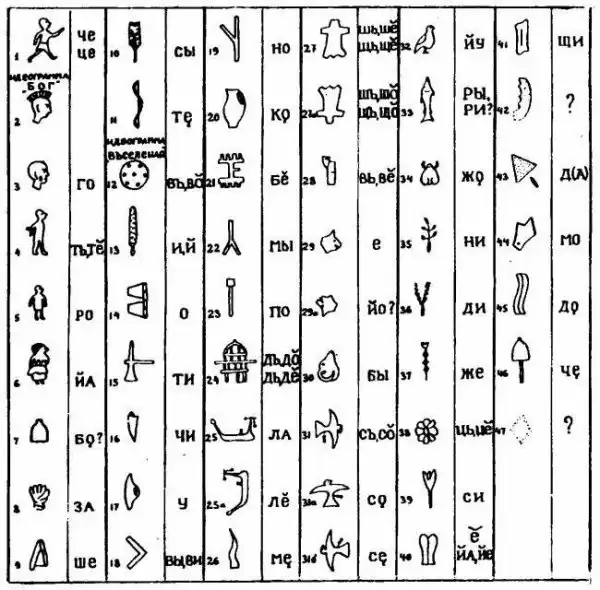 1 ЧЕ
ЦЕ
ИДЕОГРАММА
"БОГ"
2
3 ГО
4 ТЬ,ТӖ
5 РО
6 ЙА
7 БǪ?
8 ЗА
9 ШЕ
10 СЫ
11 ТĘ
ИДЕОГРАММА
ВЪСЕЛЕНАЯ
12 ВЪ,ВО̆
13 И,Й
14 О
15 ТИ
16 ЧИ
17 У
18 ВЫ,ВИ
19 НО
20 КǪ
21 БӖ
22 МЫ
23 ПО
24 ДЪ,ДО̆
ДЬ,ДӖ
25 ЛА
25а ЛӖ
26 МĘ
27 ШЬ,ШӖ
ЩЬ,ЩӖ
27а ШЪ,ШО̆
ЩЪ,ЩО̆
28 ВЬ,ВӖ
29 Е
29а ЙО?
30 БЫ
31 СЪ,СО̆
31а СǪ
31б СĘ
32 ЙУ
33 РЫ,
РИ?
34 ЖǪ
35 НИ
36 ДИ
37 ЖЕ
38 ЦЬ,ЦӖ
39 СИ
40 Ӗ
ЙА,ЙЕ
41 ЩИ
42 ?
43 Д(А)
44 МО
45 ДǪ
46 ЧĘ
47 ?